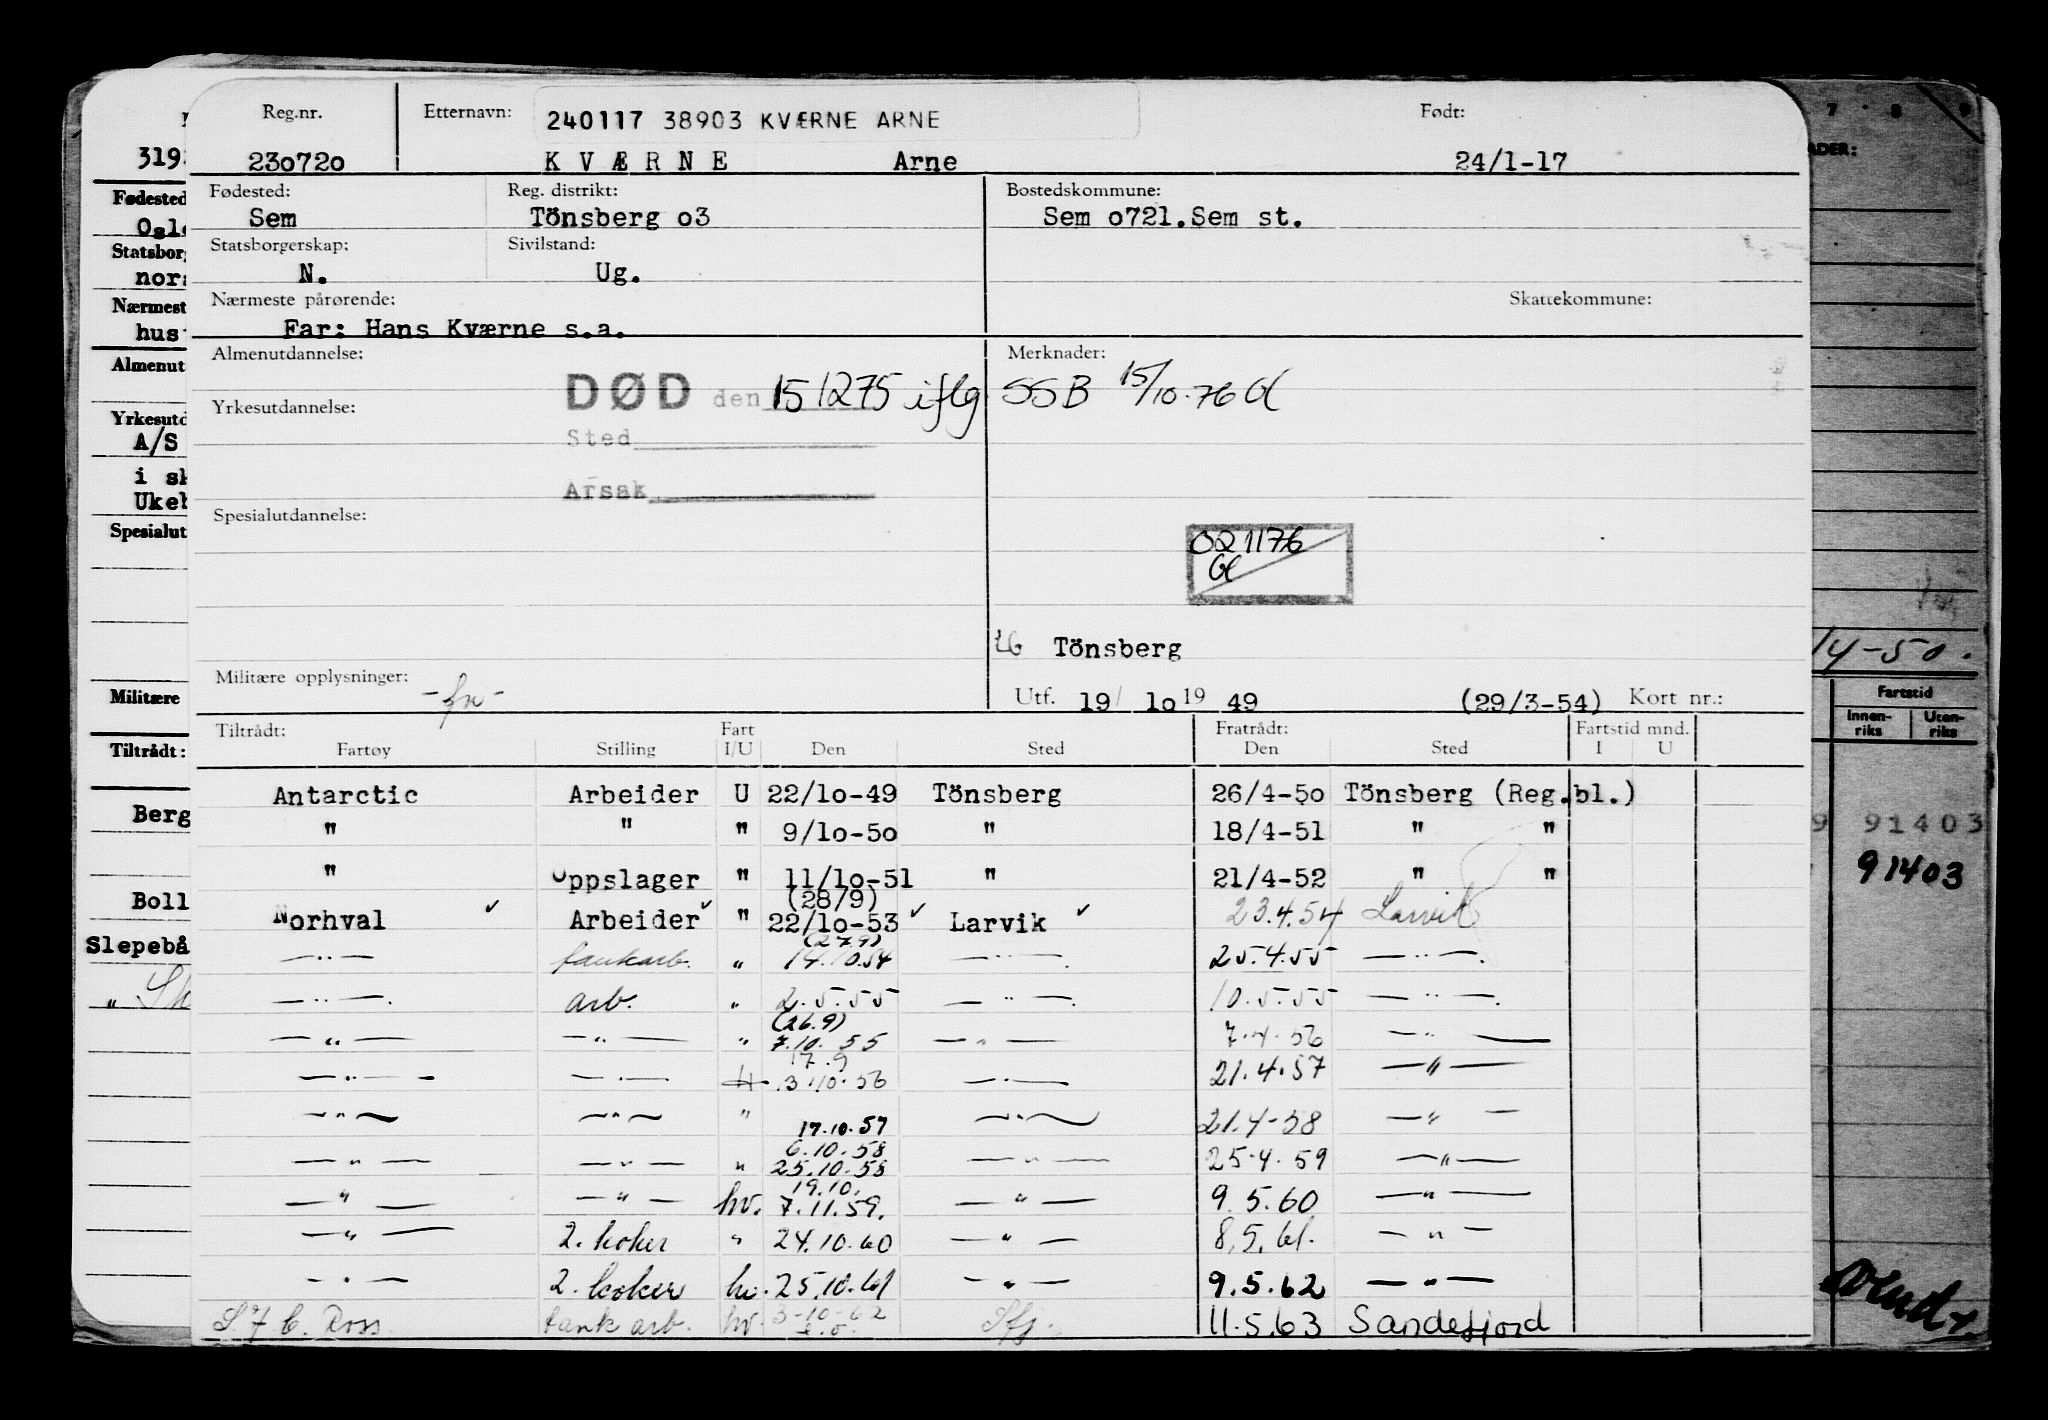 Reg.nr. Etternavn: 240117 38903 KVÆRNE ARNE Født:
23o72o K V Æ R N E Arne 24/1-17
Fødested: Reg. distrikt: Bostedskommune:
Sem Tönsberg o3 Sem o721.Sem st.
Statsborgerskap: Sivilstand:
N. Ug.
Nærmeste pårørende: Skattekommune:
Far: Hans Kværne s.a.
Almenutdannelse: Merknader:
DØD den 151275 iflg SSB 15/10.76
Yrkesutdannelse:
Sted
Arsak
Spesialutdannelse:
021176
Tönsberg
Militære opplysninger: Utf. 19/ 1o 19 49 (29/3-54) Kort nr.:
Tiltrådt: Fart Fratrådt: Fartstid mnd.
Fartøy Stilling I/U Den Sted Den Sted I U
Antarctic Arbeider U 22/1o-49 Tönsberg 26/4-5o Tönsberg (Reg.bl.)
" " " 9/1o-5o " 18/4-51 " "
" Oppslager " 11/1o-51 " 21/4-52 " "
(28/9)
Norhval ✓ Arbeider ✓ " 22/1o-53 ✓ Larvik ✓ 23.4.54 Larvik
(27.9)
—"— tankarb. " 14.10.54 —"—. 25.4.55 —"—.
—"—. arb. " 2.5.55 —"—. 10.5.55 —"—.
(26.9)
—"— —"— " 7.10.55 —"— 7.4.56 —"—
17.9
—"— —"— 3.10.56 —"— 21.4.57 —"—
—"— —"— " 17.10.57 —"— 21.4-58 —"—
6.10.58
—"— —"— " 25.10.58 —"— 25.4.59 —"—
19.10.
—"— —"— hv. 7.11.59. —"— 9.5.60 —"—
—"— 2. koker " 24.10.60 —"— 8.5.61. —"—
—"— 2. koker hv. 25.10.61 —"— 9.5.62 —"—
S. J. C. Ross tank arb. hv. 3-10-62 Sfj. 11.5.63 Sandefjord
319
Fødested
Oslo
Statsborg
nors
Nærmest
hus
Almenut
Yrkesutd
A/S
i sk
Ukeb
Spesialut
Militære
Tiltrådt:
Berg
Boll
Slepebå
7 8 9
ADER:
14-50.
Fartstid
Innen-riks Uten-riks
9 91403
91403
vend